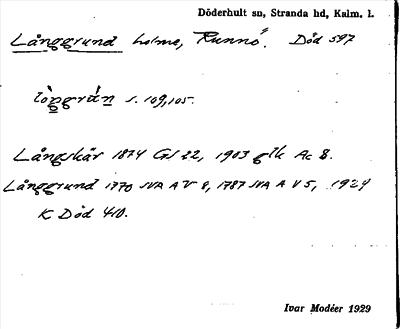 Döderhult sn, Stranda hd, Kalm. l.
Långgrund holme, Runnö. Död 597
s. 109,105.
Långskär 1874 GS 22, 1903 glk Ac 8.
Långgrund 1770 SVA A V 8, 1787 SVA A V 5, 1924
K Död 410.
Ivar Modéer 1929